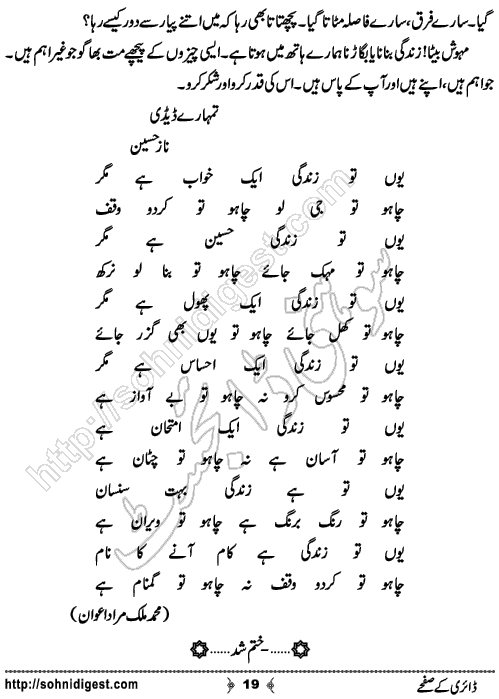 گیا۔ سارے فرق، سارے فاصلہ مٹاتا گیا۔ پچھتاتا بھی رہا کہ میں اتنے پیار سے دور کیسے رہا؟
مہوش بیٹا! زندگی بنانا یا بگاڑنا ہمارے ہاتھ میں ہوتا ہے۔ ایسی چیزوں کے پیچھے مت بھاگو جو غیر اہم ہیں۔
جو اہم ہیں، اپنے ہیں اور آپ کے پاس ہیں۔ اس کی قدر کرو اور شکر کرو۔
تمہارے ڈیڈی
ناز حسین
یوں تو زندگی ایک خواب ہے مگر
چاہو تو جی لو چاہو تو کردو وقف
یوں تو زندگی حسین ہے مگر
چاہو تو مہک جائے چاہو تو بنا لو نرکھ
یوں تو زندگی ایک پھول ہے مگر
چاہو تو کھل جائے چاہو تو یوں بھی گزر جائے
یوں تو زندگی ایک احساس ہے مگر
چاہو تو محسوس کرو نہ چاہو تو بے آواز ہے
یوں تو زندگی ایک امتحان ہے
چاہو تو آسان ہے نہ چاہو تو چٹان ہے
یوں تو ہے زندگی بہت سنسان
چاہو تو رنگ برنگ ہے چاہو تو ویران ہے
یوں تو زندگی ہے کام آنے کا نام
چاہو تو کردو وقف نہ چاہو تو گمنام ہے
(محمد ملک مراد اعوان)
۔۔۔۔۔۔ختم شد۔۔۔۔۔۔
http://sohnidigest.com
سوہنی ڈائجسٹ
http://sohnidigest.com
19
ڈائری کے صفحے